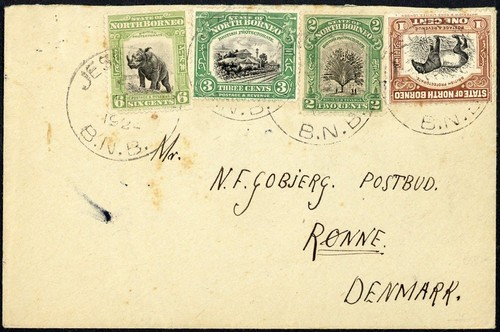 STATE OF
NORTH BORNEO
6 6
SIX CENTS
STATE OF
NORTH BORNEO
BRITISH PROTECTORATE
3 3
THREE CENTS
POSTAGE & REVENUE
STATE OF
NORTH BORNEO
2 2
2 2
TWO CENTS
STATE OF NORTH BORNEO
1 1
ONE CENT
B.N.B.
B.N.B.
B.N.B.
Mr.
N.F. GOBJERG. POSTBUD.
RØNNE.
DENMARK.